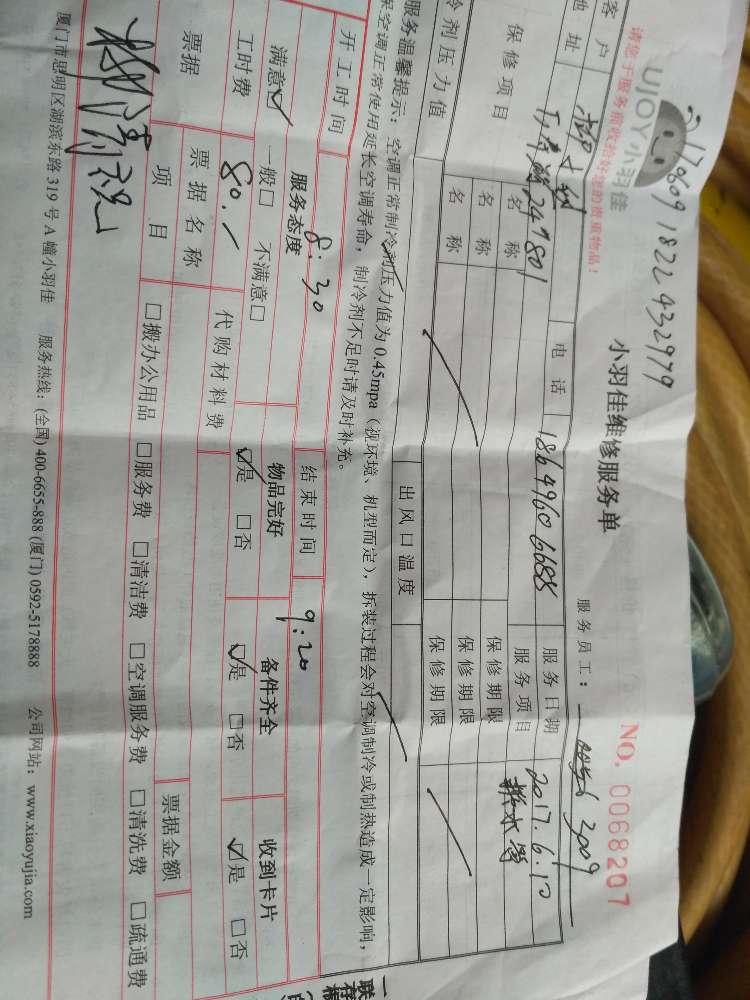 17609 1822432979
UJOY小羽佳
小羽佳维修服务单
NO. 0068207
请您于服务前收拾好您的贵重物品！
服务员工： 3009
客户 电话 18649606688 服务日期 2017.6.10
地址 24#801 服务项目 换水管
保修项目 名称 保修期限
名称 保修期限
名称 保修期限
冷剂压力值 出风口温度
服务温馨提示：空调正常制冷剂压力值为 0.45mpa（视环境、机型而定），拆装过程会对空调制冷或制热造成一定影响，
保空调正常使用延长空调寿命，制冷剂不足时请及时补充。
开工时间 8:30 结束时间 9:20
服务态度 物品完好 备件齐全 收到卡片
满意☑ 一般□ 不满意□ ☑是 □否 ☑是 □否 ☑是 □否
工时费 80.- 代购材料费
票据 票据名称 票据金额
项目 □搬办公用品 □服务费 □清洁费 □空调服务费 □清洗费 □疏通费
厦门市思明区湖滨东路 319 号 A 幢小羽佳 服务热线：(全国) 400-6655-888 (厦门) 0592-5178888 公司网站：www.xiaoyujia.com